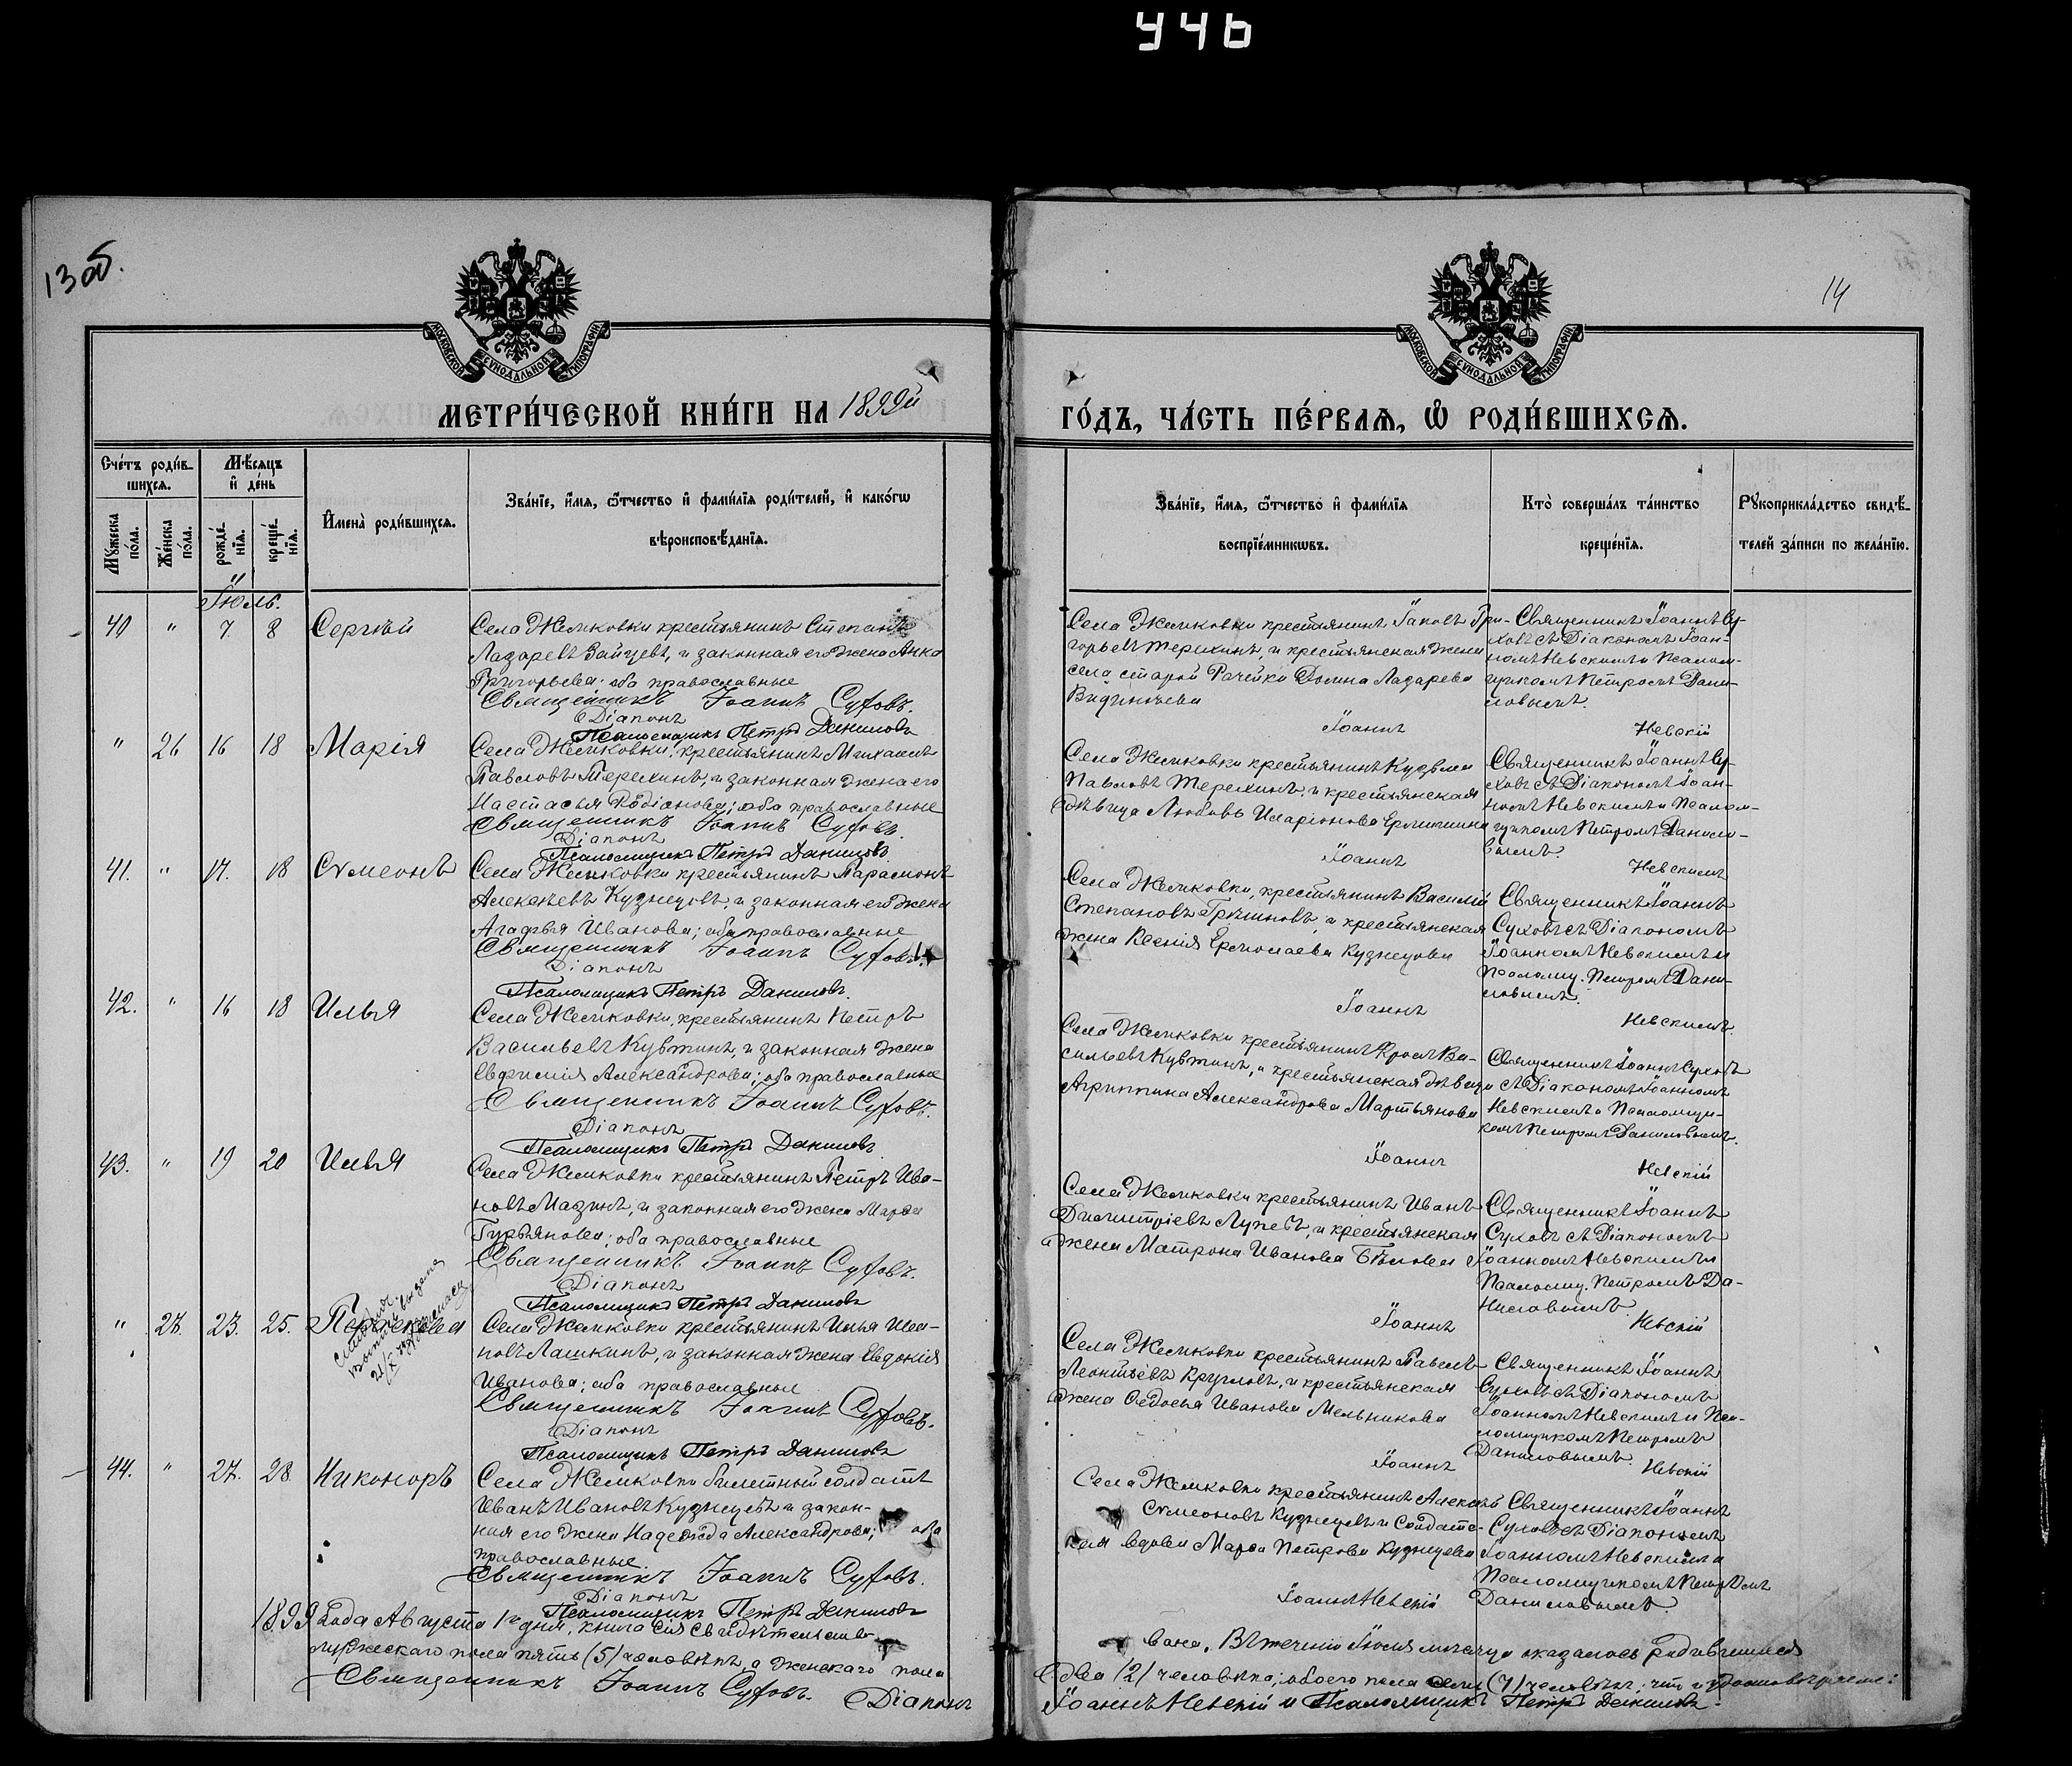 446
13 об.
14
МОСКОВСКОЙ СѴНОДАЛЬНОЙ ТИПОГРАФІИ
МОСКОВСКОЙ СѴНОДАЛЬНОЙ ТИПОГРАФІИ
МЕТРИ́ЧЕСКОЙ КНИ́ГИ НА 1899й
ГО́ДЪ, ЧА́СТЬ ПЕ́РВАѦ, Ѽ РОДИ́ВШИХСѦ.
Сче́тъ роди́в-
шихсѧ.
Мѣ́сѧцъ
и҆ де́нь
Мꙋжеска по́ла.
Же́нска по́ла.
рожде́нїѧ.
креще́нїѧ.
И҆мена̀ роди́вшихсѧ.
Зва́нїе, и҆́мѧ, ѿтчество и҆ фами́лїѧ роди́телей, и҆ како́гѡ
вѣроисповѣ́данїѧ.
Зва́нїе, и҆́мѧ, ѿтчество и҆ фами́лїѧ
воспрїе́мникѡвъ.
Кто̀ соверша́лъ та́инство
креще́нїѧ.
Рꙋкоприкла́дство свидѣ́-
телей за́писи по жела́нїю.
Іюль.
40 " 7 8 Сергѣй
Села Жемковки крестьянинъ Степанъ
Лазаревъ Зайцевъ, и законная его жена Анна
Григорьева; оба православные
Священникъ Іоаннъ Суховъ.
Діаконъ
Псаломщикъ Петръ Даниловъ
Села Жемковки крестьянинъ Іаковъ Гри-
горьевъ Терехинъ, и крестьянская жена
села старой Рачейки Домна Лазарева
Іоаннъ Невскій
Священникъ Іоаннъ Су-
ховъ съ Діакономъ Іоан-
номъ Невскимъ и Псалом-
щикомъ Петромъ Дани-
ловымъ.
" 26 16 18 Марія
Села Жемковки, крестьянинъ Михаилъ
Павловъ Терехинъ, и законная жена его
Настасья Родіонова; оба православные
Священникъ Іоаннъ Суховъ.
Діаконъ
Псаломщикъ Петръ Даниловъ
Села Жемковки крестьянинъ Кузьма
Павловъ Терехинъ, и крестьянская
дѣвица Любовь Иларіонова
Іоаннъ Невскимъ
Священникъ Іоаннъ Су-
ховъ съ Діакономъ Іоан-
номъ Невскимъ и Псалом-
щикомъ Петромъ Данило-
вымъ.
41. " 17. 18 Сѵмеонъ
Села Жемковки крестьянинъ Парамонъ
Алексѣевъ Кузнецовъ, и законная его жена
Агафья Иванова; оба православные
Священникъ Іоаннъ Суховъ.
Діаконъ
Псаломщикъ Петръ Даниловъ.
Села Жемковки, крестьянинъ Василій
Степановъ Гришновъ, и крестьянская
жена Ксенія Ермолаева Кузнецова
Іоаннъ Невскимъ.
Священникъ Іоаннъ
Суховъ съ Діакономъ
Іоанномъ Невскимъ и
Псаломщ. Петромъ Дани-
ловымъ.
42. " 16 18 Илья
Села Жемковки, крестьянинъ Петръ
Васильевъ Кувтинъ, и законная жена
Евфимія Александрова; оба православные
Священникъ Іоаннъ Суховъ.
Діаконъ
Псаломщикъ Петръ Даниловъ
Села Жемковки крестьянинъ Фролъ Ва-
сильевъ Кувтинъ, и крестьянская дѣвица
Агриппина Александрова Мартьянова
Іоаннъ Невскій
Священникъ Іоаннъ Суховъ
съ Діакономъ Іоанномъ
Невскимъ и Псаломщи-
комъ Петромъ Даниловымъ.
43. " 19 20 Илья
Села Жемковки крестьянинъ Петръ Ива-
новъ Мазинъ, и законная его жена Марѳа
Гурьянова; оба православные
Священникъ Іоаннъ Суховъ.
Діаконъ
Псаломщикъ Петръ Даниловъ
Села Жемковки крестьянинъ Иванъ
Дмитріевъ Луневъ, и крестьянская
жена Матрона Иванова Бѣлова
Іоаннъ Невскій
Священникъ Іоаннъ
Суховъ съ Діакономъ
Іоанномъ Невскимъ и
Псаломщ. Петромъ Да-
ниловымъ.
" 27. 23. 25. Параскева
Села Жемковки крестьянинъ Илья Ива-
новъ Лашкинъ, и законная жена Евдокія
Иванова; оба православные
Священникъ Іоаннъ Суховъ.
Діаконъ
Псаломщикъ Петръ Даниловъ
Села Жемковки крестьянинъ Павелъ
Леонтьевъ Кругловъ, и крестьянская
жена Ѳедосья Иванова Мельникова
Іоаннъ Невскій
Священникъ Іоаннъ
Суховъ съ Діакономъ
Іоанномъ Невскимъ и Пса-
ломщикомъ Петромъ
Даниловымъ.
44. " 27. 28. Никоноръ
Села Жемковки билетный солдатъ
Иванъ Ивановъ Кузнецовъ и закон-
ная его жена Надежда Александрова; оба
православные.
Священникъ Іоаннъ Суховъ.
Діаконъ
Псаломщикъ Петръ Даниловъ
Села Жемковки крестьянинъ Алексѣй
Сѵмеоновъ Кузнецовъ и Солдатс-
кая вдова Марѳа Петрова Кузнецова
Іоаннъ Невскій
Священникъ Іоаннъ
Суховъ съ Діакономъ
Іоанномъ Невскимъ и
Псаломщикомъ Петромъ
Даниловымъ.
1899 Года Августа 1го дня, книга сія свидѣтельство-
вана. Въ теченіи Іюля мѣсяца оказалось родившихся
мужескаго пола пять (5) человѣкъ, а женскаго пола
два (2) человѣка; обоего пола семь (7) человѣкъ; что и удостовѣряемъ:
Священникъ Іоаннъ Суховъ. Діаконъ
Іоаннъ Невскій и Псаломщикъ Петръ Даниловъ.